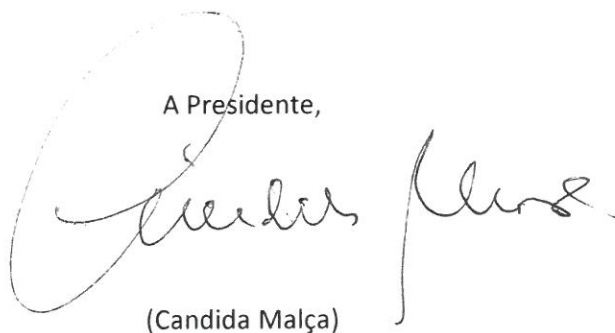 A Presidente,
(Candida Malça)